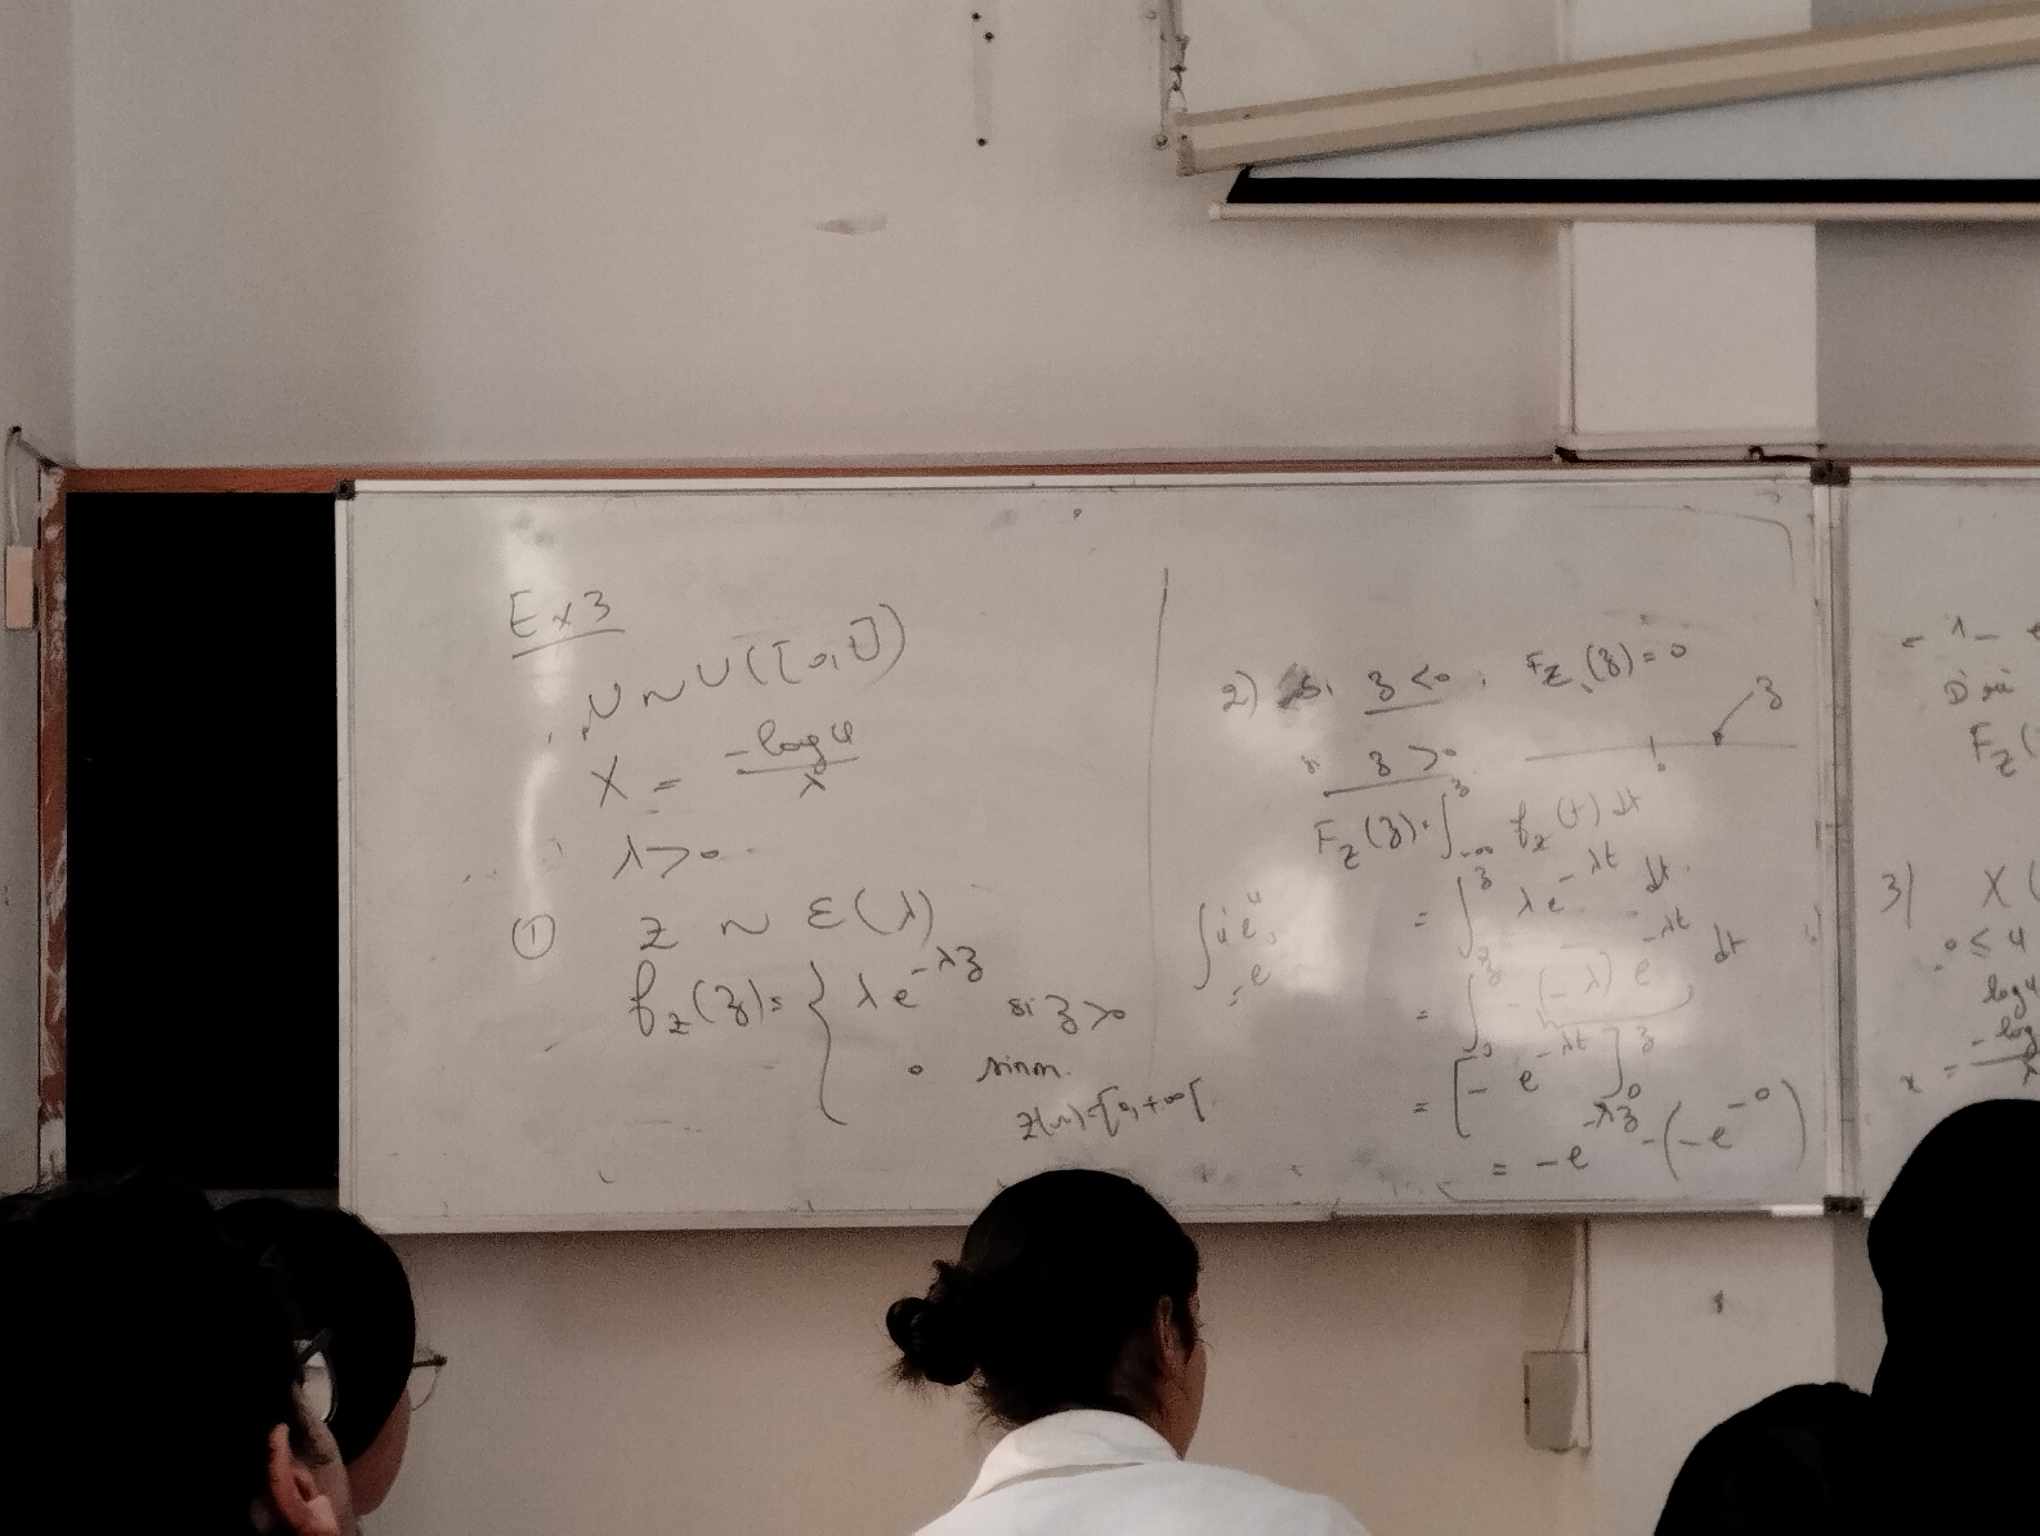 Ex3
U ~ U([0,1])
X = -log u / λ
λ>0
① Z ~ ε(λ)
f_Z(z) = { λe^{-λz} si z>0
0 sinon.
Z(Ω)=[0,+∞[
2) si z<0, F_Z(z)=0
si z>0
z
0
F_Z(z) = ∫_{-∞}^{z} f_Z(t) dt
= ∫_0^z λe^{-λt} dt.
∫u'e^u
= e^u
= ∫_0^z -(-λ)e^{-λt} dt
= [-e^{-λt}]_0^z
= -e^{-λz} - (-e^{-0})
= 1 -
D'où
F_Z(
3) X(
0 ≤ u
log u
-log
x = λ